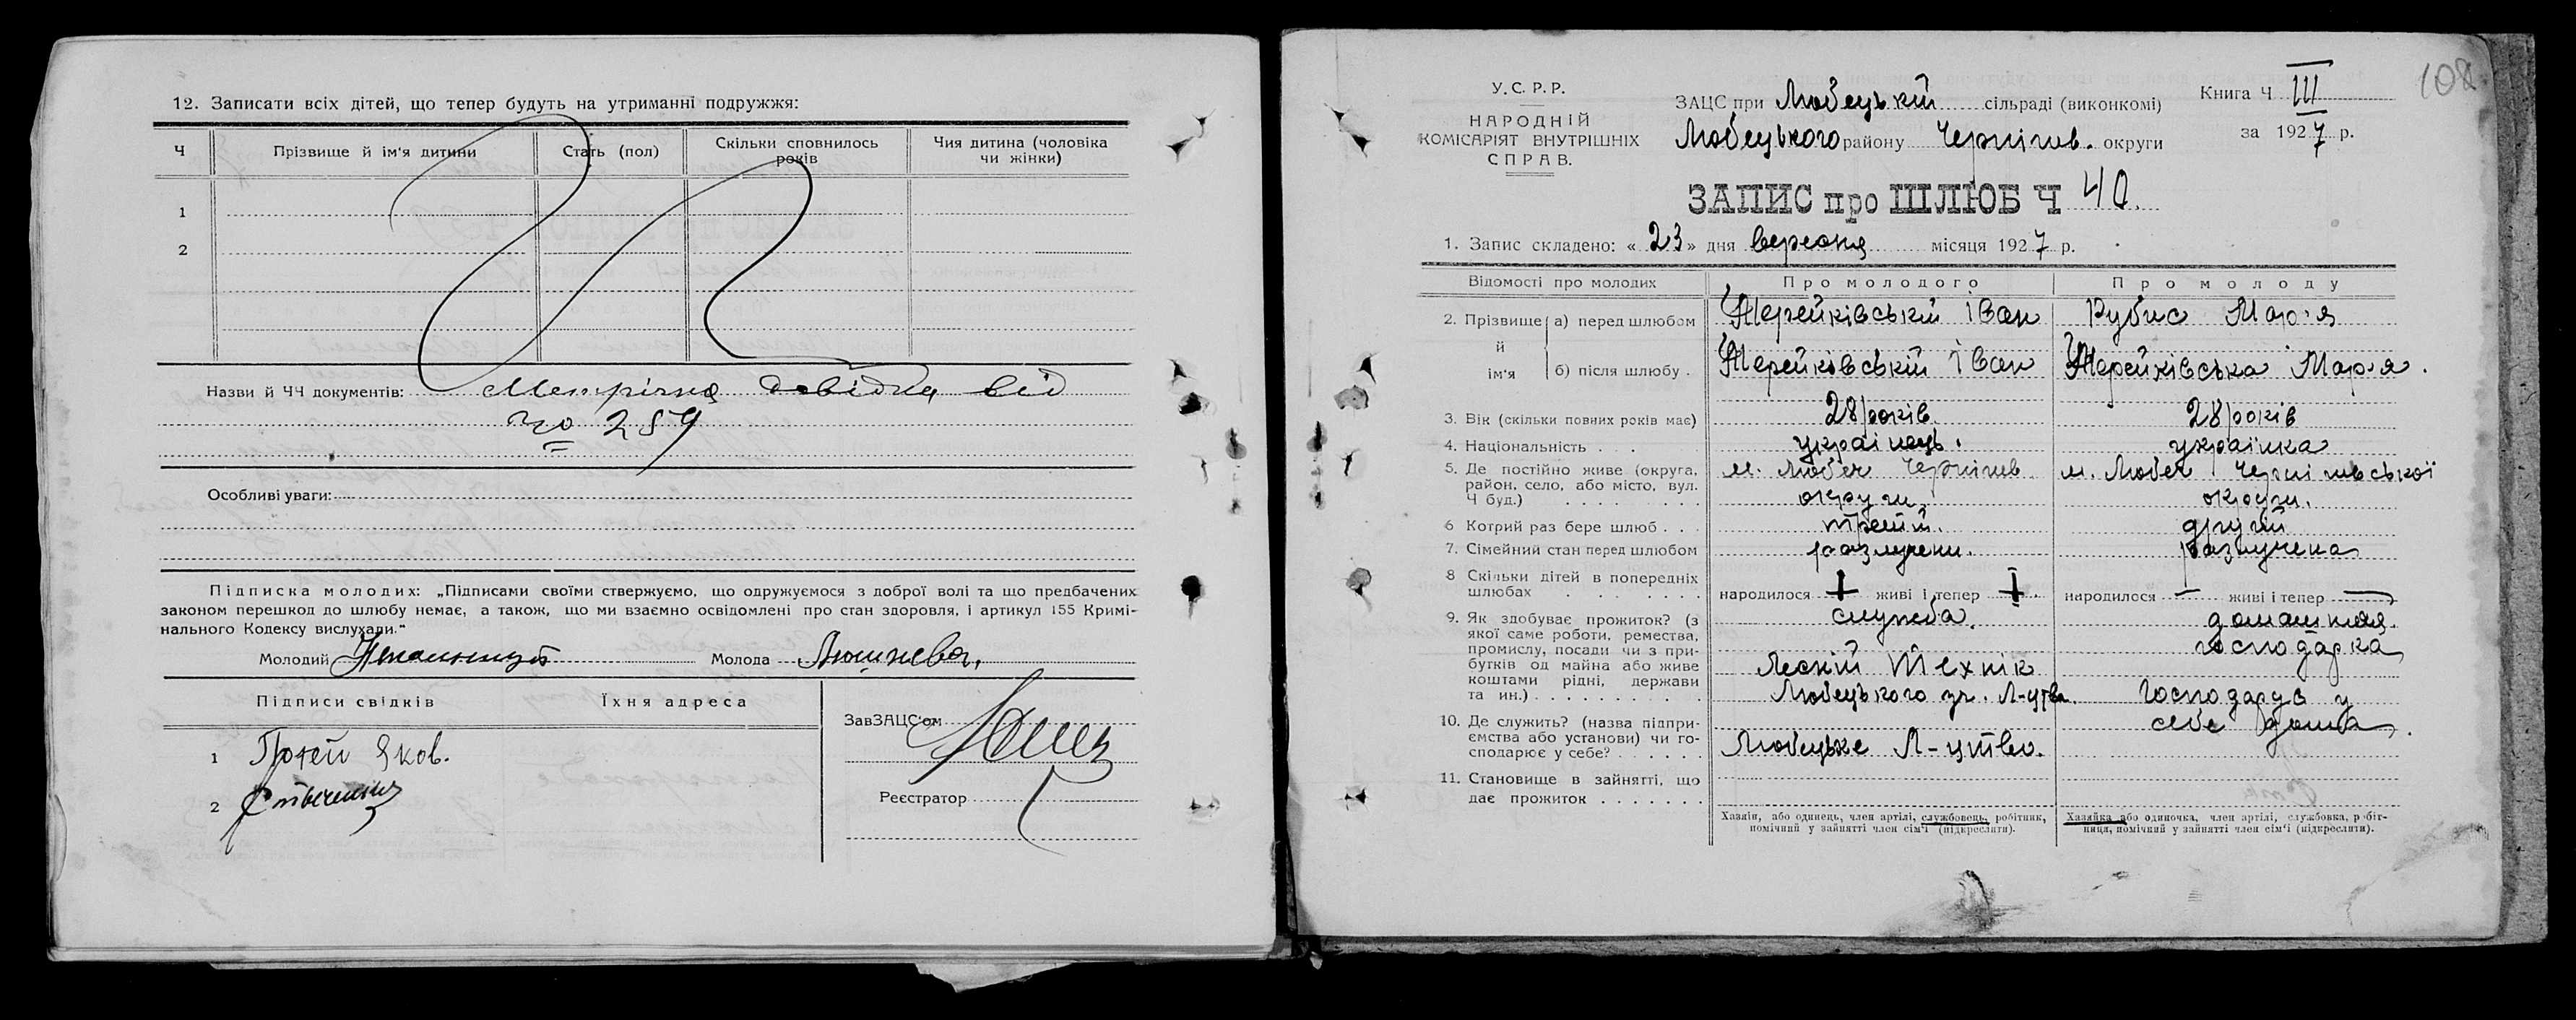 12. Записати всіх дітей, що тепер будуть на утриманні подружжя:
Ч
Прізвище й ім'я дитини
Стать (пол)
Скільки сповнилось років
Чия дитина (чоловіка чи жінки)
1
2
Назви й ЧЧ документів: Метрічна довідка від
№ 259
Особливі уваги:
Підписка молодих: „Підписами своїми стверджуємо, що одружуємося з доброї волі та що предбачених
законом перешкод до шлюбу немає, а також, що ми взаємно освідомлені про стан здоровля, і артикул 155 Кримі-
нального Кодексу вислухали."
Молодий
Молода
Підписи свідків
Їхня адреса
1 Яков.
2
ЗавЗАЦС'ом
Реєстратор
108
У.С.Р.Р.
НАРОДНІЙ
КОМІСАРІЯТ ВНУТРІШНІХ
СПРАВ.
ЗАЦС при Любецькій сільраді (виконкомі)
Любецького району Чернігів. округи
Книга Ч III
за 1927 р.
ЗАПИС про ШЛЮБ Ч 40.
1. Запис складено: « 23 » дня вересня місяця 1927 р.
Відомості про молодих
Про молодого
Про молоду
2. Прізвище й ім'я
а) перед шлюбом
Іван
Рубис Мар'я
б) після шлюбу .
Іван
Мар'я.
3. Вік (скільки повних років має)
28 років
28 років
4. Національність . . .
українець.
українка
5. Де постійно живе (округа,
район, село, або місто, вул.
Ч буд.) . . . . . . .
м. Любеч Чернігів
округи
м. Любеч Чернігівської
округи.
6 Котрий раз бере шлюб . . .
третій.
другій
7. Сімейний стан перед шлюбом
разлучени.
разлучена
8 Скільки дітей в попередніх
шлюбах . . . . . . .
народилося I живі і тепер I.
народилося — живі і тепер —
9. Як здобуває прожиток? (з
якої саме роботи, ремества,
промислу, посади чи з при-
бутків од майна або живе
коштами рідні, держави
та ин.) . . . . . . . .
служба.
Лескій Технік
Любецького Л-цтва.
домашняя.
господарка
10. Де служить? (назва підпри-
ємства або установи) чи го-
сподарює у себе? . . . . . .
Любецьке Л-цтво.
Господарує у
себе дома.
11. Становище в зайнятті, що
дає прожиток . . . . . . .
Хазяїн, або одинець, член артілі, службовець, робітник,
помічний у зайнятті член сім'ї (підкреслити).
Хазяйка або одиночка, член артілі, службовка, робіт-
ниця, помічний у зайнятті член сім'ї (підкреслити).